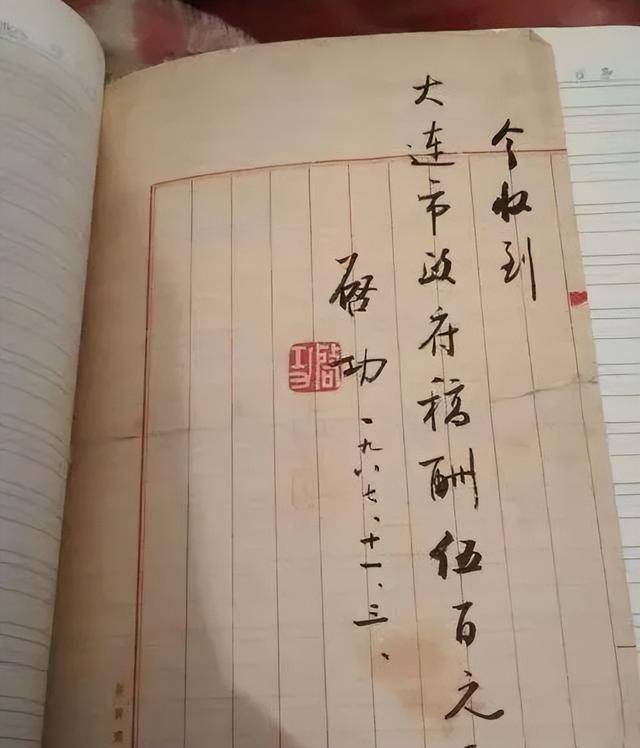 今收到
大连市政府稿酬伍百元
启功 一九八七、十一、三、
启功